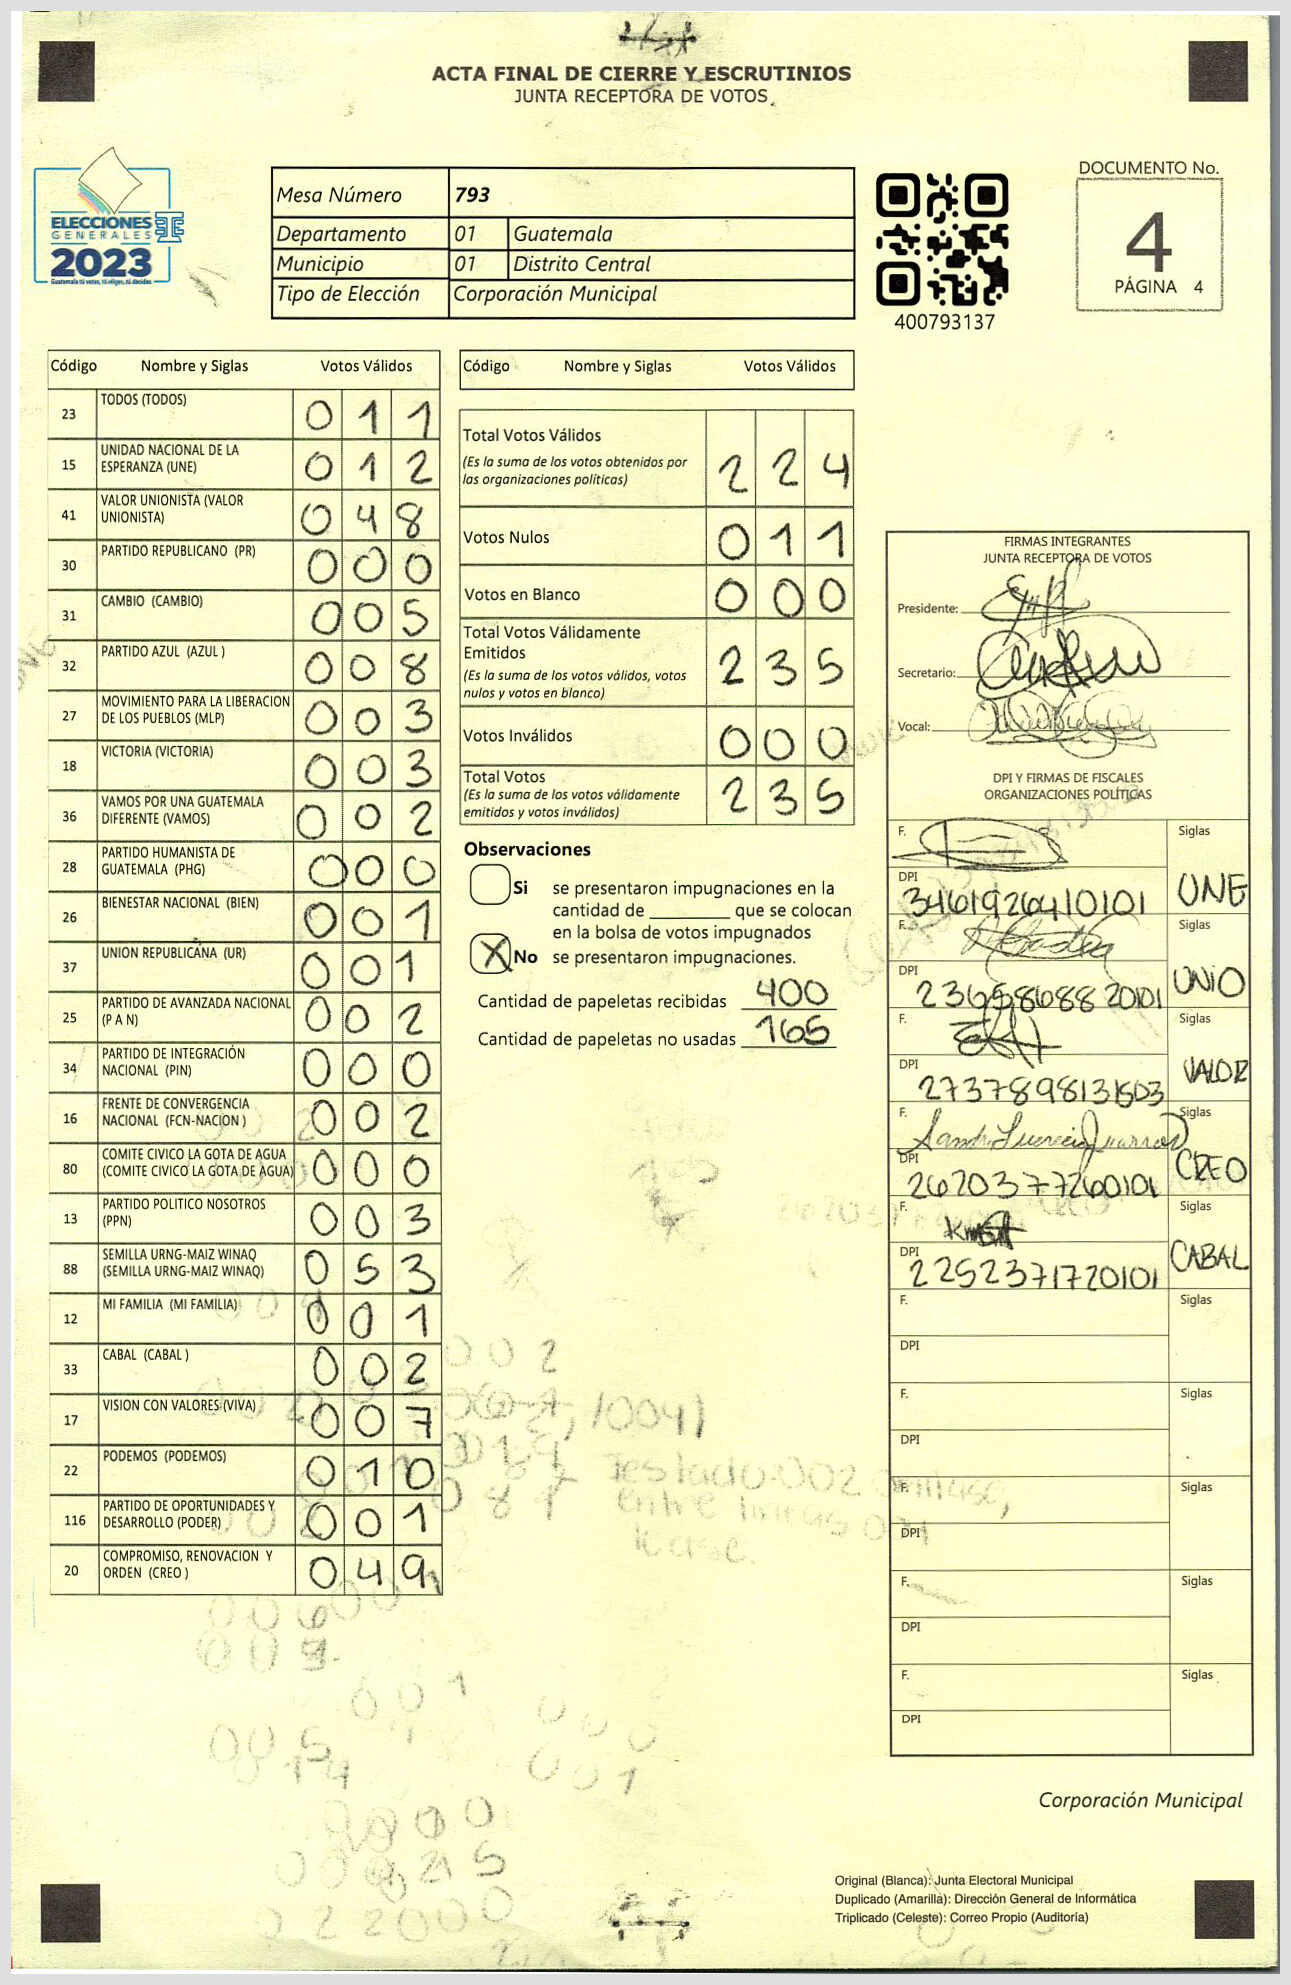 ACTA FINAL DE CIERRE Y ESCRUTINIOS
JUNTA RECEPTORA DE VOTOS
ELECCIONES
GENERALES
2023
Guatemala tú votas, tú eliges, tú decides
Mesa Número 793
Departamento 01 Guatemala
Municipio 01 Distrito Central
Tipo de Elección Corporación Municipal
400793137
DOCUMENTO No.
4
PÁGINA 4
Código Nombre y Siglas Votos Válidos
23 TODOS (TODOS) 011
15 UNIDAD NACIONAL DE LA ESPERANZA (UNE) 012
41 VALOR UNIONISTA (VALOR UNIONISTA) 048
30 PARTIDO REPUBLICANO (PR) 000
31 CAMBIO (CAMBIO) 005
32 PARTIDO AZUL (AZUL ) 008
27 MOVIMIENTO PARA LA LIBERACION DE LOS PUEBLOS (MLP) 003
18 VICTORIA (VICTORIA) 003
36 VAMOS POR UNA GUATEMALA DIFERENTE (VAMOS) 002
28 PARTIDO HUMANISTA DE GUATEMALA (PHG) 000
26 BIENESTAR NACIONAL (BIEN) 001
37 UNION REPUBLICANA (UR) 001
25 PARTIDO DE AVANZADA NACIONAL (P A N) 002
34 PARTIDO DE INTEGRACIÓN NACIONAL (PIN) 000
16 FRENTE DE CONVERGENCIA NACIONAL (FCN-NACION ) 002
80 COMITE CIVICO LA GOTA DE AGUA (COMITE CIVICO LA GOTA DE AGUA) 000
13 PARTIDO POLITICO NOSOTROS (PPN) 003
88 SEMILLA URNG-MAIZ WINAQ (SEMILLA URNG-MAIZ WINAQ) 053
12 MI FAMILIA (MI FAMILIA) 001
33 CABAL (CABAL ) 002
17 VISION CON VALORES (VIVA) 007
22 PODEMOS (PODEMOS) 010
116 PARTIDO DE OPORTUNIDADES Y DESARROLLO (PODER) 001
20 COMPROMISO, RENOVACION Y ORDEN (CREO ) 049
Código Nombre y Siglas Votos Válidos
Total Votos Válidos 224
(Es la suma de los votos obtenidos por
las organizaciones políticas)
Votos Nulos 011
Votos en Blanco 000
Total Votos Válidamente
Emitidos 235
(Es la suma de los votos válidos, votos
nulos y votos en blanco)
Votos Inválidos 000
Total Votos 235
(Es la suma de los votos válidamente
emitidos y votos inválidos)
Observaciones
Si se presentaron impugnaciones en la
cantidad de ________ que se colocan
en la bolsa de votos impugnados
X No se presentaron impugnaciones.
Cantidad de papeletas recibidas 400
Cantidad de papeletas no usadas 165
FIRMAS INTEGRANTES
JUNTA RECEPTORA DE VOTOS
Presidente:
Secretario:
Vocal:
DPI Y FIRMAS DE FISCALES
ORGANIZACIONES POLÍTICAS
F. Siglas
DPI 3461926410101 UNE
F. Siglas
DPI UNIO
F. Siglas
DPI 2737898131503 VALOR
F. Siglas
DPI 2620377260101 CREO
F. Siglas
DPI 2252371720101 CABAL
F. Siglas
DPI
F. Siglas
DPI
F. Siglas
DPI
F. Siglas
DPI
F. Siglas
DPI
Corporación Municipal
Original (Blanca): Junta Electoral Municipal
Duplicado (Amarilla): Dirección General de Informática
Triplicado (Celeste): Correo Propio (Auditoría)